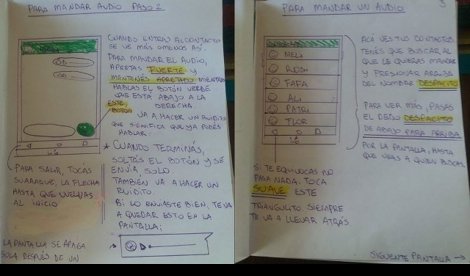 PARA MANDAR AUDIO PASO 2
CUANDO ENTRAS AL CONTACTO
SE VE MÁS O MENOS ASÍ.
PARA MANDAR EL AUDIO,
APRETAS FUERTE Y
MANTENÉS APRETADO MIENTRAS
HABLAS EL BOTÓN VERDE
QUE ESTÁ ABAJO A LA
DERECHA
ESTE
BOTÓN
VA A HACER UN RUIDITO
QUE SIGNIFICA QUE YA PODÉS
HABLAR
* CUANDO TERMINÁS,
SOLTÁS EL BOTÓN Y SE
ENVÍA SOLO
TAMBIÉN VA A HACER UN
RUIDITO
SI LO ENVIASTE BIEN, TE VA
A QUEDAR ESTO EN LA
PANTALLA:
PARA SALIR, TOCAS
SUAVE LA FLECHA
HASTA QUE VUELVAS
AL INICIO
LA PANTALLA SE APAGA
SOLA DESPUÉS DE UN
PARA MANDAR UN AUDIO
MELI
RUSH
PAPA
ALI
PATRI
FLOR
ACA VES TUS CONTACTOS
TENÉS QUE BUSCAR AL
QUE LE QUIERAS MANDAR
Y PRESIONAR ARRIBA
DEL NOMBRE DESPACITO
PARA VER MÁS, PASÁS
EL DEDO DESPACITO
DE ABAJO PARA ARRIBA
POR LA PANTALLA, HASTA
QUE VEAS A QUIEN BUSCAS
SI TE EQUIVOCAS NO
PASA NADA. TOCA
SUAVE ESTE
TRIANGULITO SIEMPRE
TE VA A LLEVAR ATRÁS
SIGUIENTE PANTALLA →